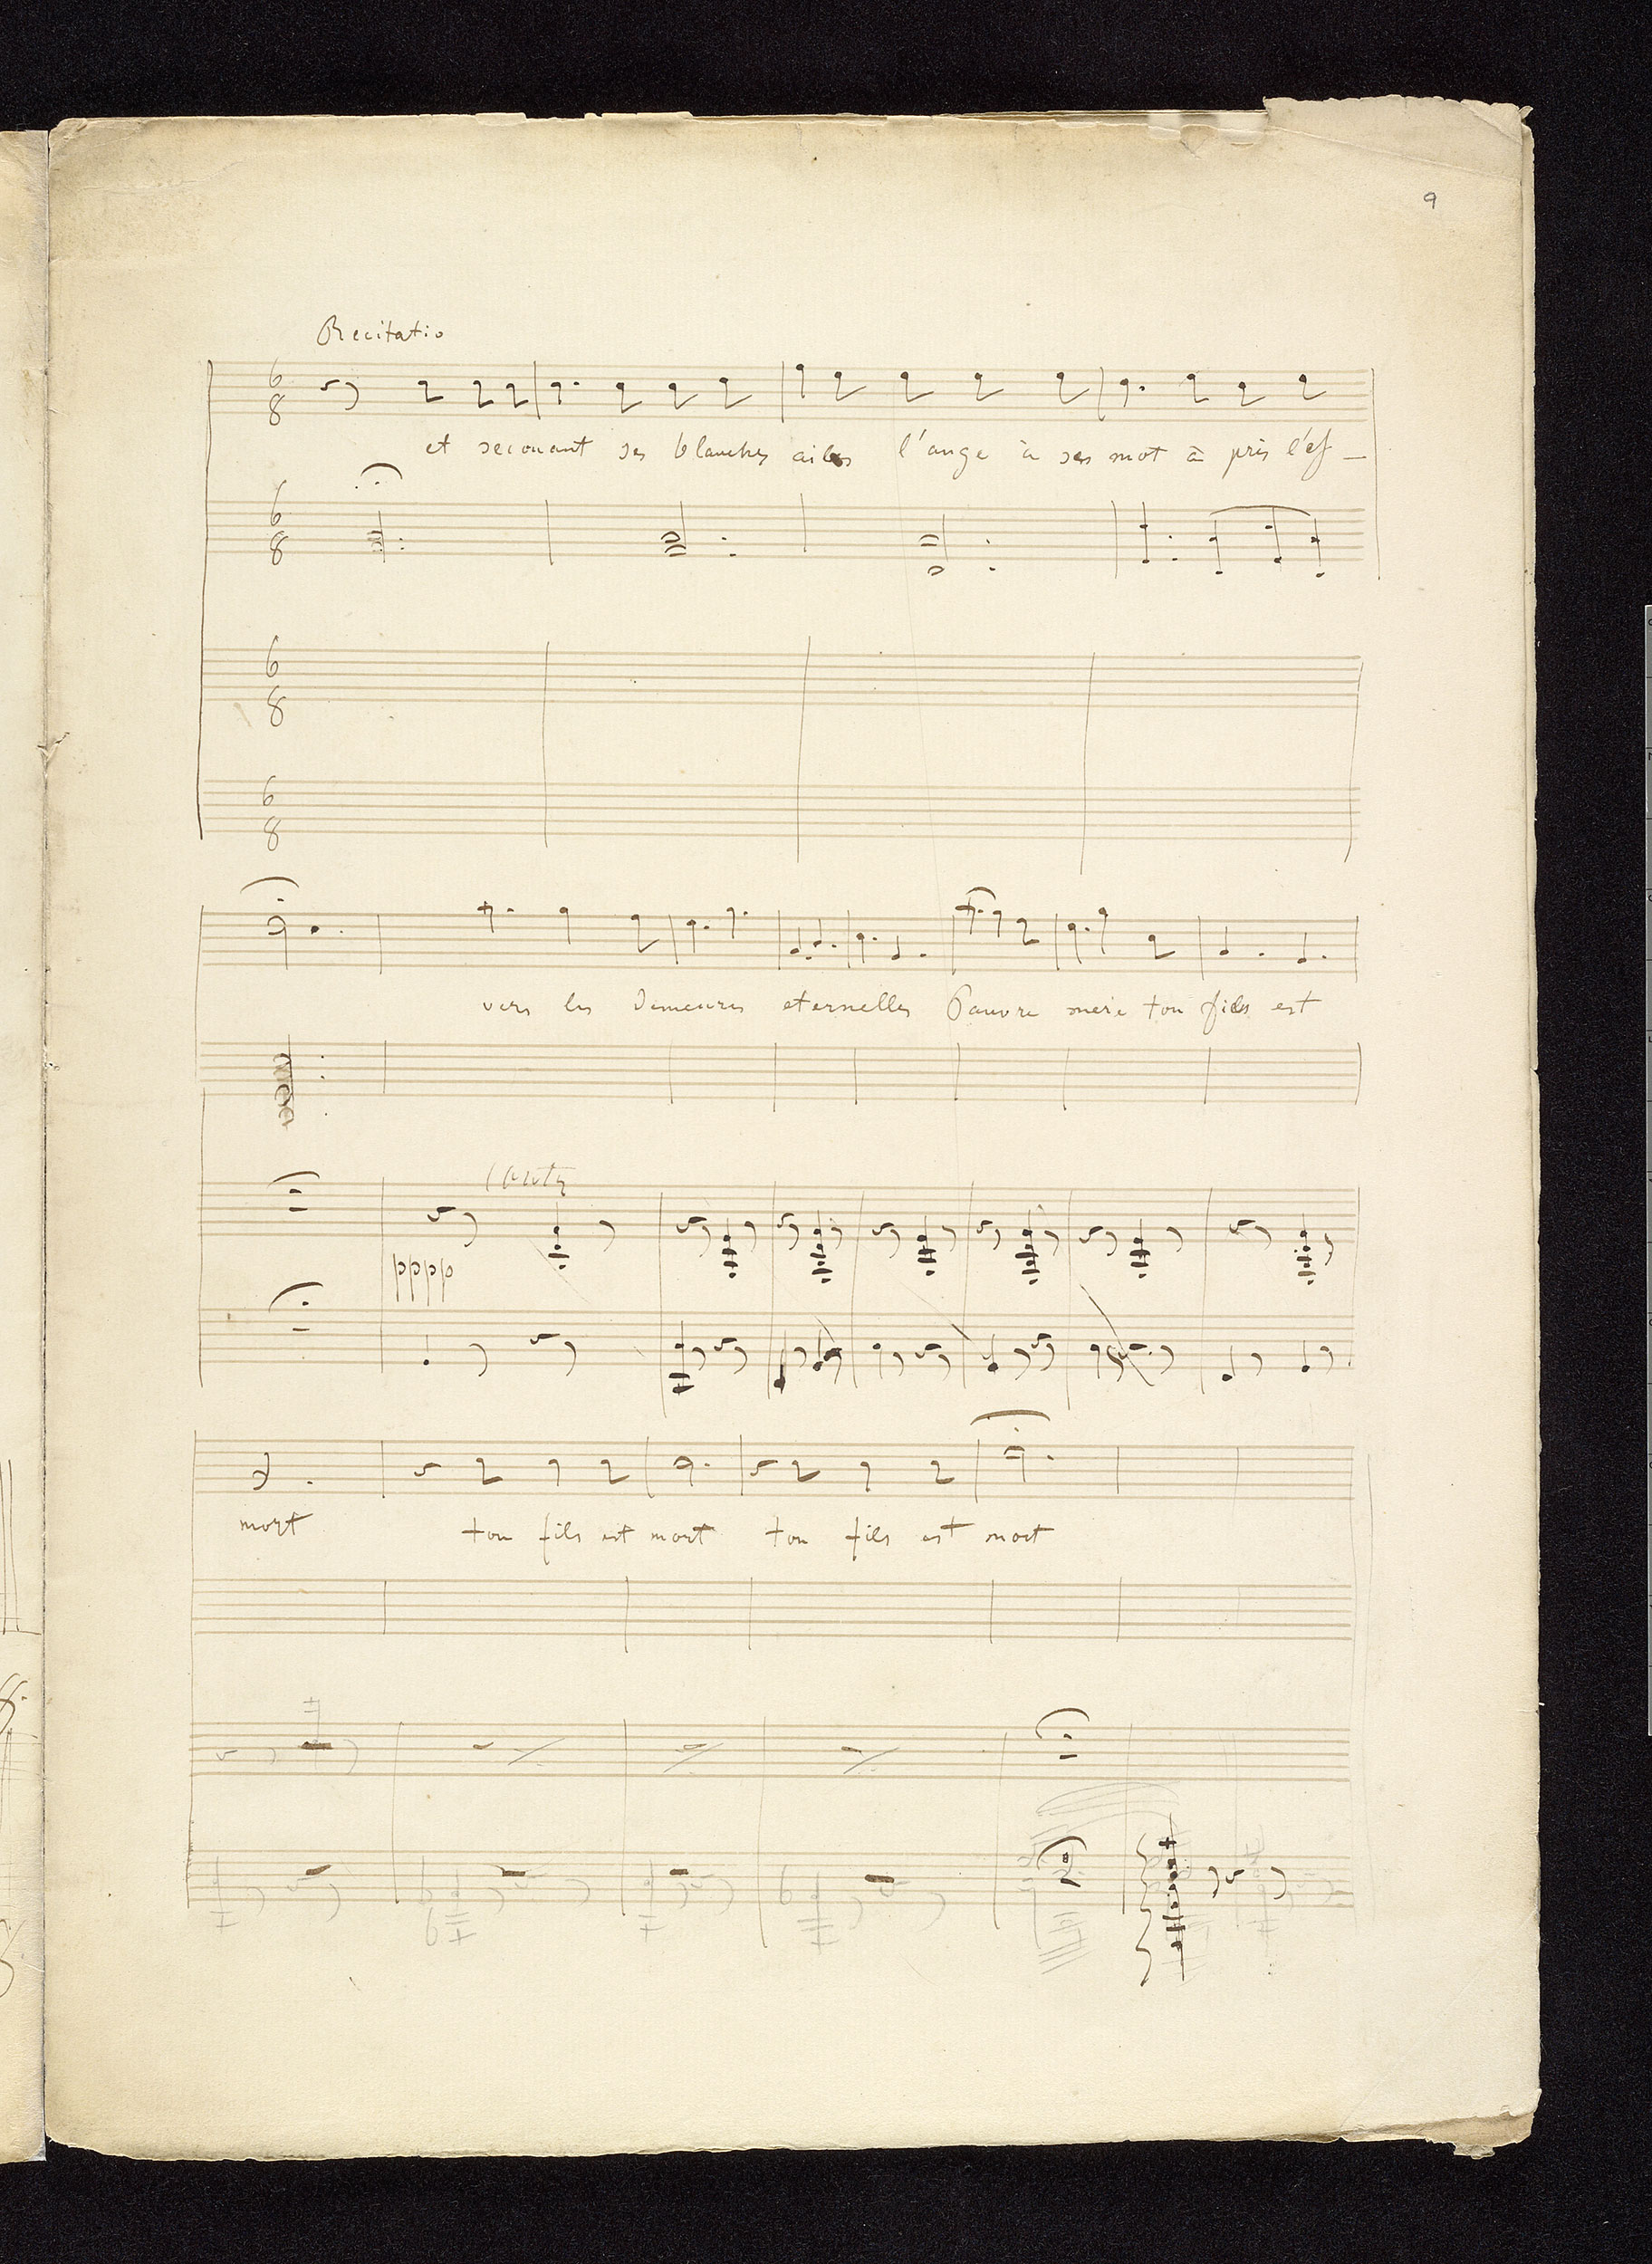 9
Recitatio
6
8
et secouant ses blanches ailes l'ange à ses mot à pris l'ef —
6
8
6
8
6
8
vers les demeures eternelles Pauvre mere ton fils est
pppp
mort ton fils est mort ton fils est mort